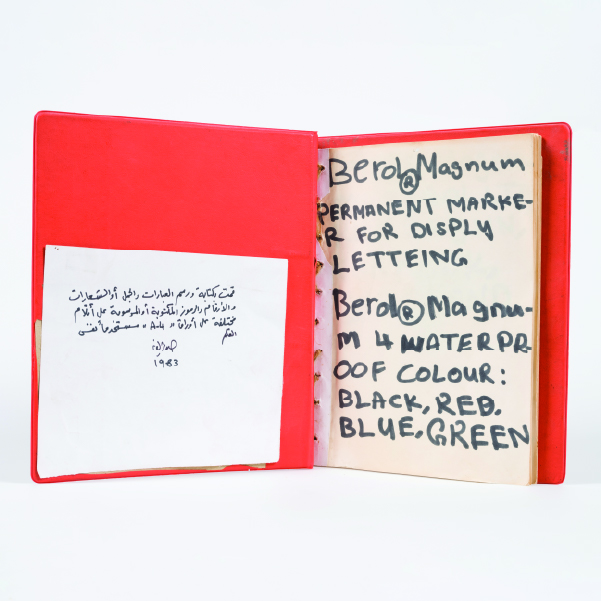 قمت بكتابة ورسم العبارات والجمل أو الشعارات
والأرقام والرموز المكتوبة أو المرسومة على أقلام
مختلفة على أوراق « A4 » مستخدماً نفس
القلم
1983
Berol® Magnum
PERMANENT MARKE-
R FOR DISPLY
LETTEING
Berol® Magnu-
M 4 WATERPR-
OOF COLOUR:
BLACK, RED,
BLUE, GREEN